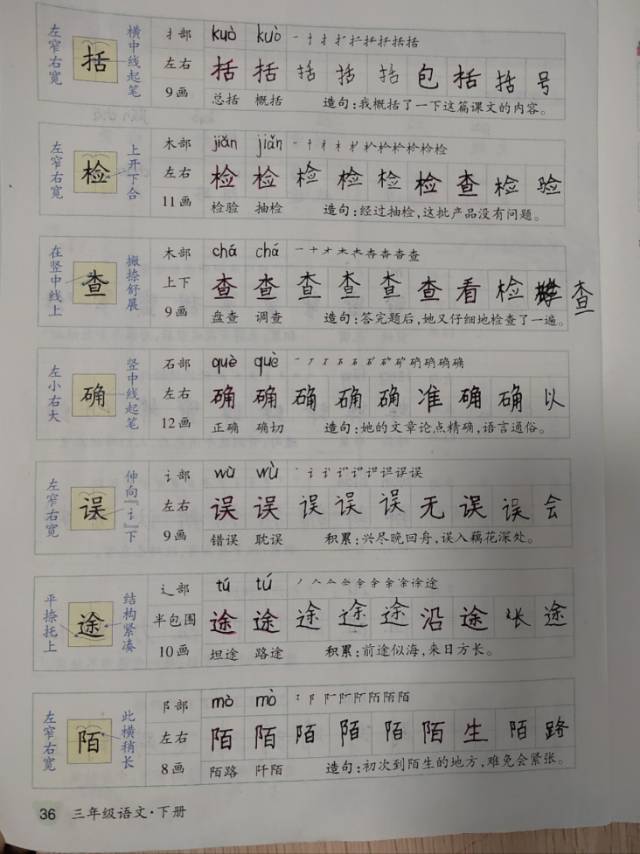 左窄右宽 括 横中线起笔
扌部 kuò kuò
左右 括 括 括 括 括 包 括 括 号
9画 总括 概括 造句：我概括了一下这篇课文的内容。
左窄右宽 检 上开下合
木部 jiǎn jiǎn
左右 检 检 检 检 检 检 查 检 验
11画 检验 抽检 造句：经过抽检，这批产品没有问题。
在竖中线上 查 撇捺舒展
木部 chá chá
上下 查 查 查 查 查 查 看 检 查
9画 盘查 调查 造句：答完题后，她又仔细地检查了一遍。
左小右大 确 竖中线起笔
石部 què què
左右 确 确 确 确 确 准 确 确 以
12画 正确 确切 造句：她的文章论点精确，语言通俗。
左窄右宽 误 伸向“讠”下
讠部 wù wù
左右 误 误 误 误 误 无 误 误 会
9画 错误 耽误 积累：兴尽晚回舟，误入藕花深处。
平捺托上 途 结构紧凑
辶部 tú tú
半包围 途 途 途 途 途 沿 途 长 途
10画 坦途 路途 积累：前途似海，来日方长。
左窄右宽 陌 此横稍长
阝部 mò mò
左右 陌 陌 陌 陌 陌 陌 生 陌 路
8画 陌路 阡陌 造句：初次到陌生的地方，难免会紧张。
36 三年级语文·下册